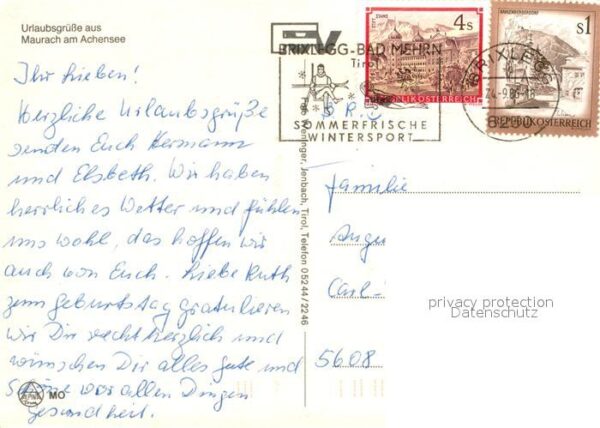 Urlaubsgrüße aus
Maurach am Achensee
Ihr Lieben!
Herzliche Urlaubsgrüße
senden Euch Hermann
und Elsbeth. Wir haben
herrliches Wetter und fühlen
uns wohl, das hoffen wir
auch von Euch. Liebe Ruth
zum Geburtstag gratulieren
wir Dir recht herzlich und
wünschen Dir alles gute und
vor allen Dingen
Gesundheit.
MO
Foto Weninger, Jenbach, Tirol, Telefon 05244/2246
BRIXLEGG-BAD MEHRN
Tirol
SOMMERFRISCHE
WINTERSPORT
4s
REPUBLIK ÖSTERREICH
s1
REPUBLIK ÖSTERREICH
BRIXLEGG
6230
Familie
Carl-
5608
privacy protection
Datenschutz